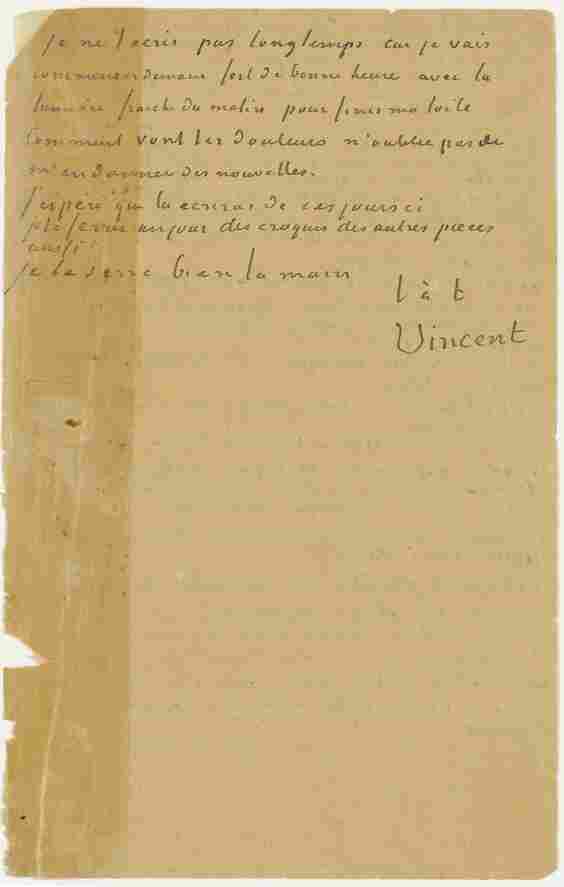 Je ne t'ecris pas longtemps car je vais
commencer demain fort de bonne heure avec la
lumière fraiche du matin pour finir ma toile
Comment vont les douleurs n'oublie pas de
m'en donner des nouvelles.
J'espère que tu ecriras de ces jours ci
je te ferai un jour des croquis des autres pièces
aussi
je te serre bien la main
t à t
Vincent